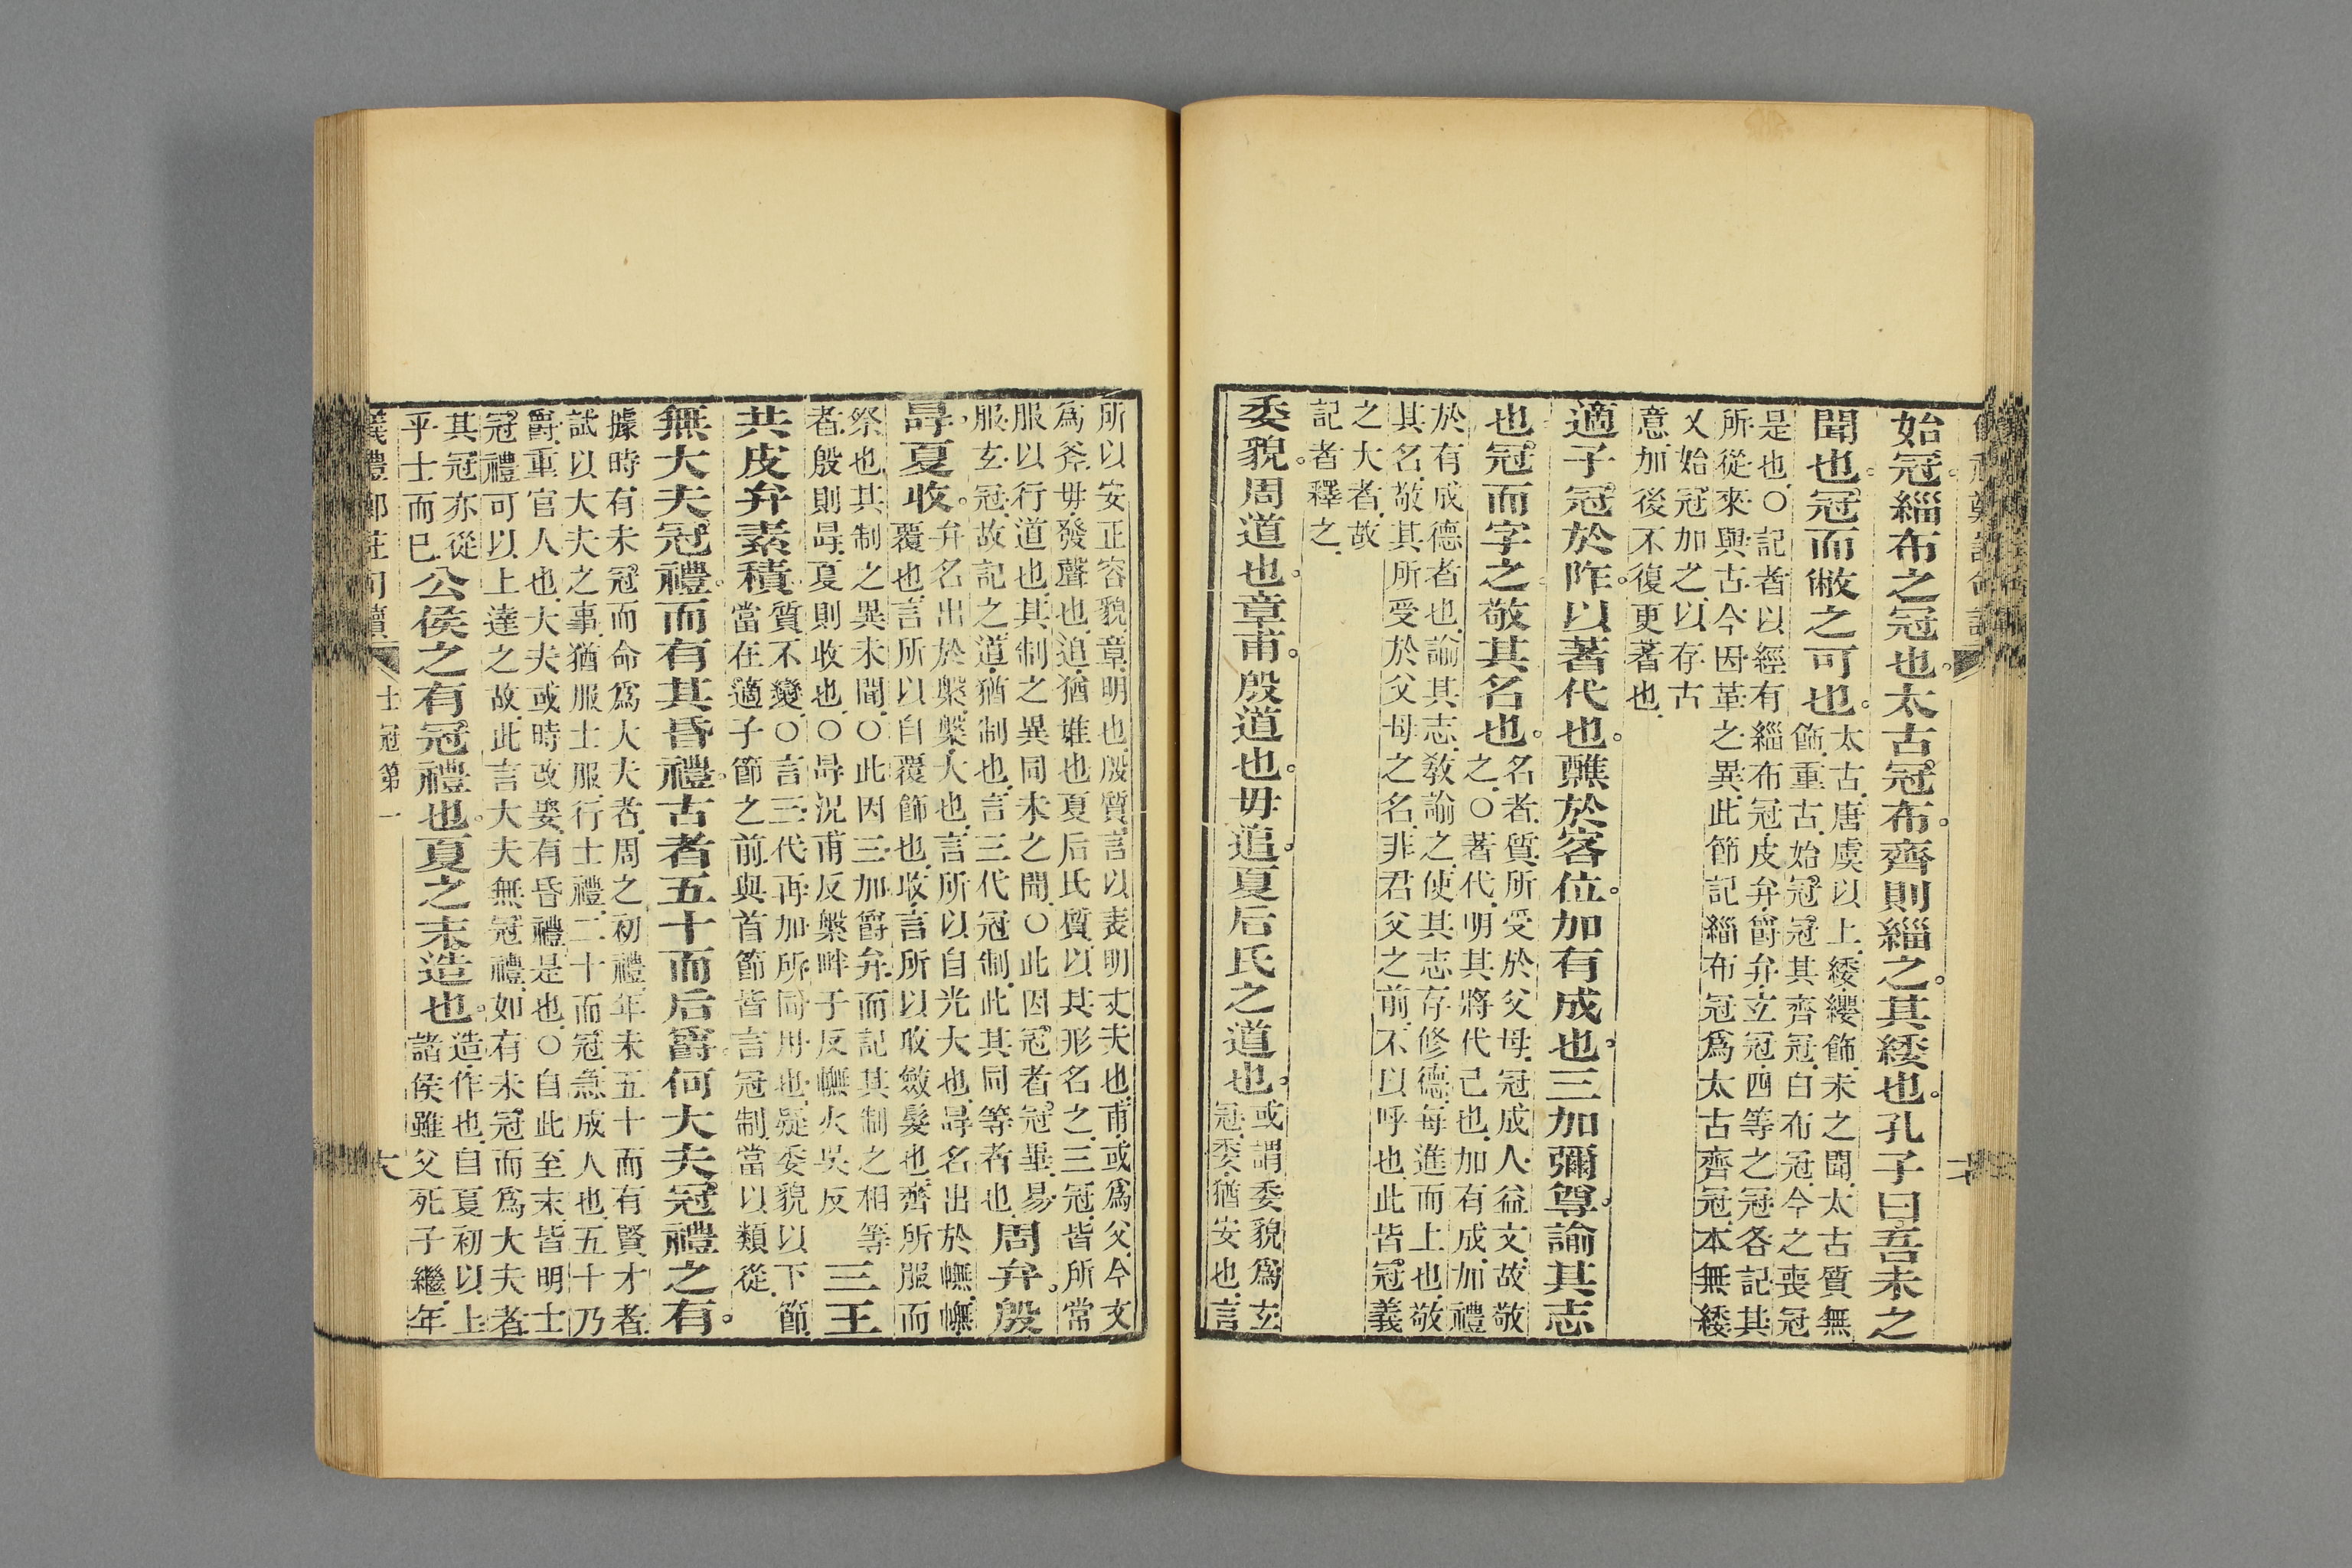 始冠緇布之冠也。太古冠布。齊則緇之。其緌也。孔子曰吾未之
聞也。冠而敝之可也。太古唐虞以上緌纓飾未之聞太古質無
飾重古始冠冠其齊冠白布冠今之喪冠
是也○記者以經有緇布冠皮弁爵弁玄冠四等之冠各記其
所從來與古今因革之異此節記緇布冠爲太古齊冠本無緌
乂始冠加之以存古
意加後不復更著也
適子冠於阼。以著代也。醮於客位。加有成也。三加彌尊。諭其志
也。冠而字之敬其名也。名者質所受於父母冠成人益文故敬
之○著代明其將代己也加有成加禮
於有成德者也諭其志教諭之使其志存修德每進而上也敬
其名敬其所受於父母之名非君父之前不以呼也此皆冠義
之大者故
記者釋之
委貌。周道也。章甫。殷道也。毋追。夏后氏之道也。或謂委貌爲玄
冠委猶安也言
所以安正容貌章明也殷質言以表明丈夫也甫或爲父今文
爲斧毋發聲也追猶堆也夏后氏質以其形名之三冠皆所常
服以行道也其制之異同未之聞○此因冠者冠畢易
服玄冠故記之道猶制也言三代冠制此其同等者也周弁。殷
冔。夏收。弁名出於槃槃大也言所以自光大也冔名出於幠幠
覆也言所以自覆飾也收言所以收斂髮也齊所服而
祭也其制之異未聞○此因三加爵弁而記其制之相等
者殷則冔夏則收也○冔況甫反槃畔干反幠火吳反三王
共皮弁素積。質不變○言三代再加所同用也疑委貌以下節
當在適子節之前與首節皆言冠制當以類從
無大夫冠禮。而有其昏禮。古者五十而后爵。何大夫冠禮之有。
據時有未冠而命爲大夫者周之初禮年未五十而有賢才者
試以大夫之事猶服士服行士禮二十而冠急成人也五十乃
爵重官人也大夫或時改娶有昏禮是也○自此至末皆明士
冠禮可以上達之故此言大夫無冠禮如有未冠而爲大夫者
其冠亦從
乎士而已公侯之有冠禮也。夏之末造也。造作也自夏初以上
諸侯雖父死子繼年
士冠第一